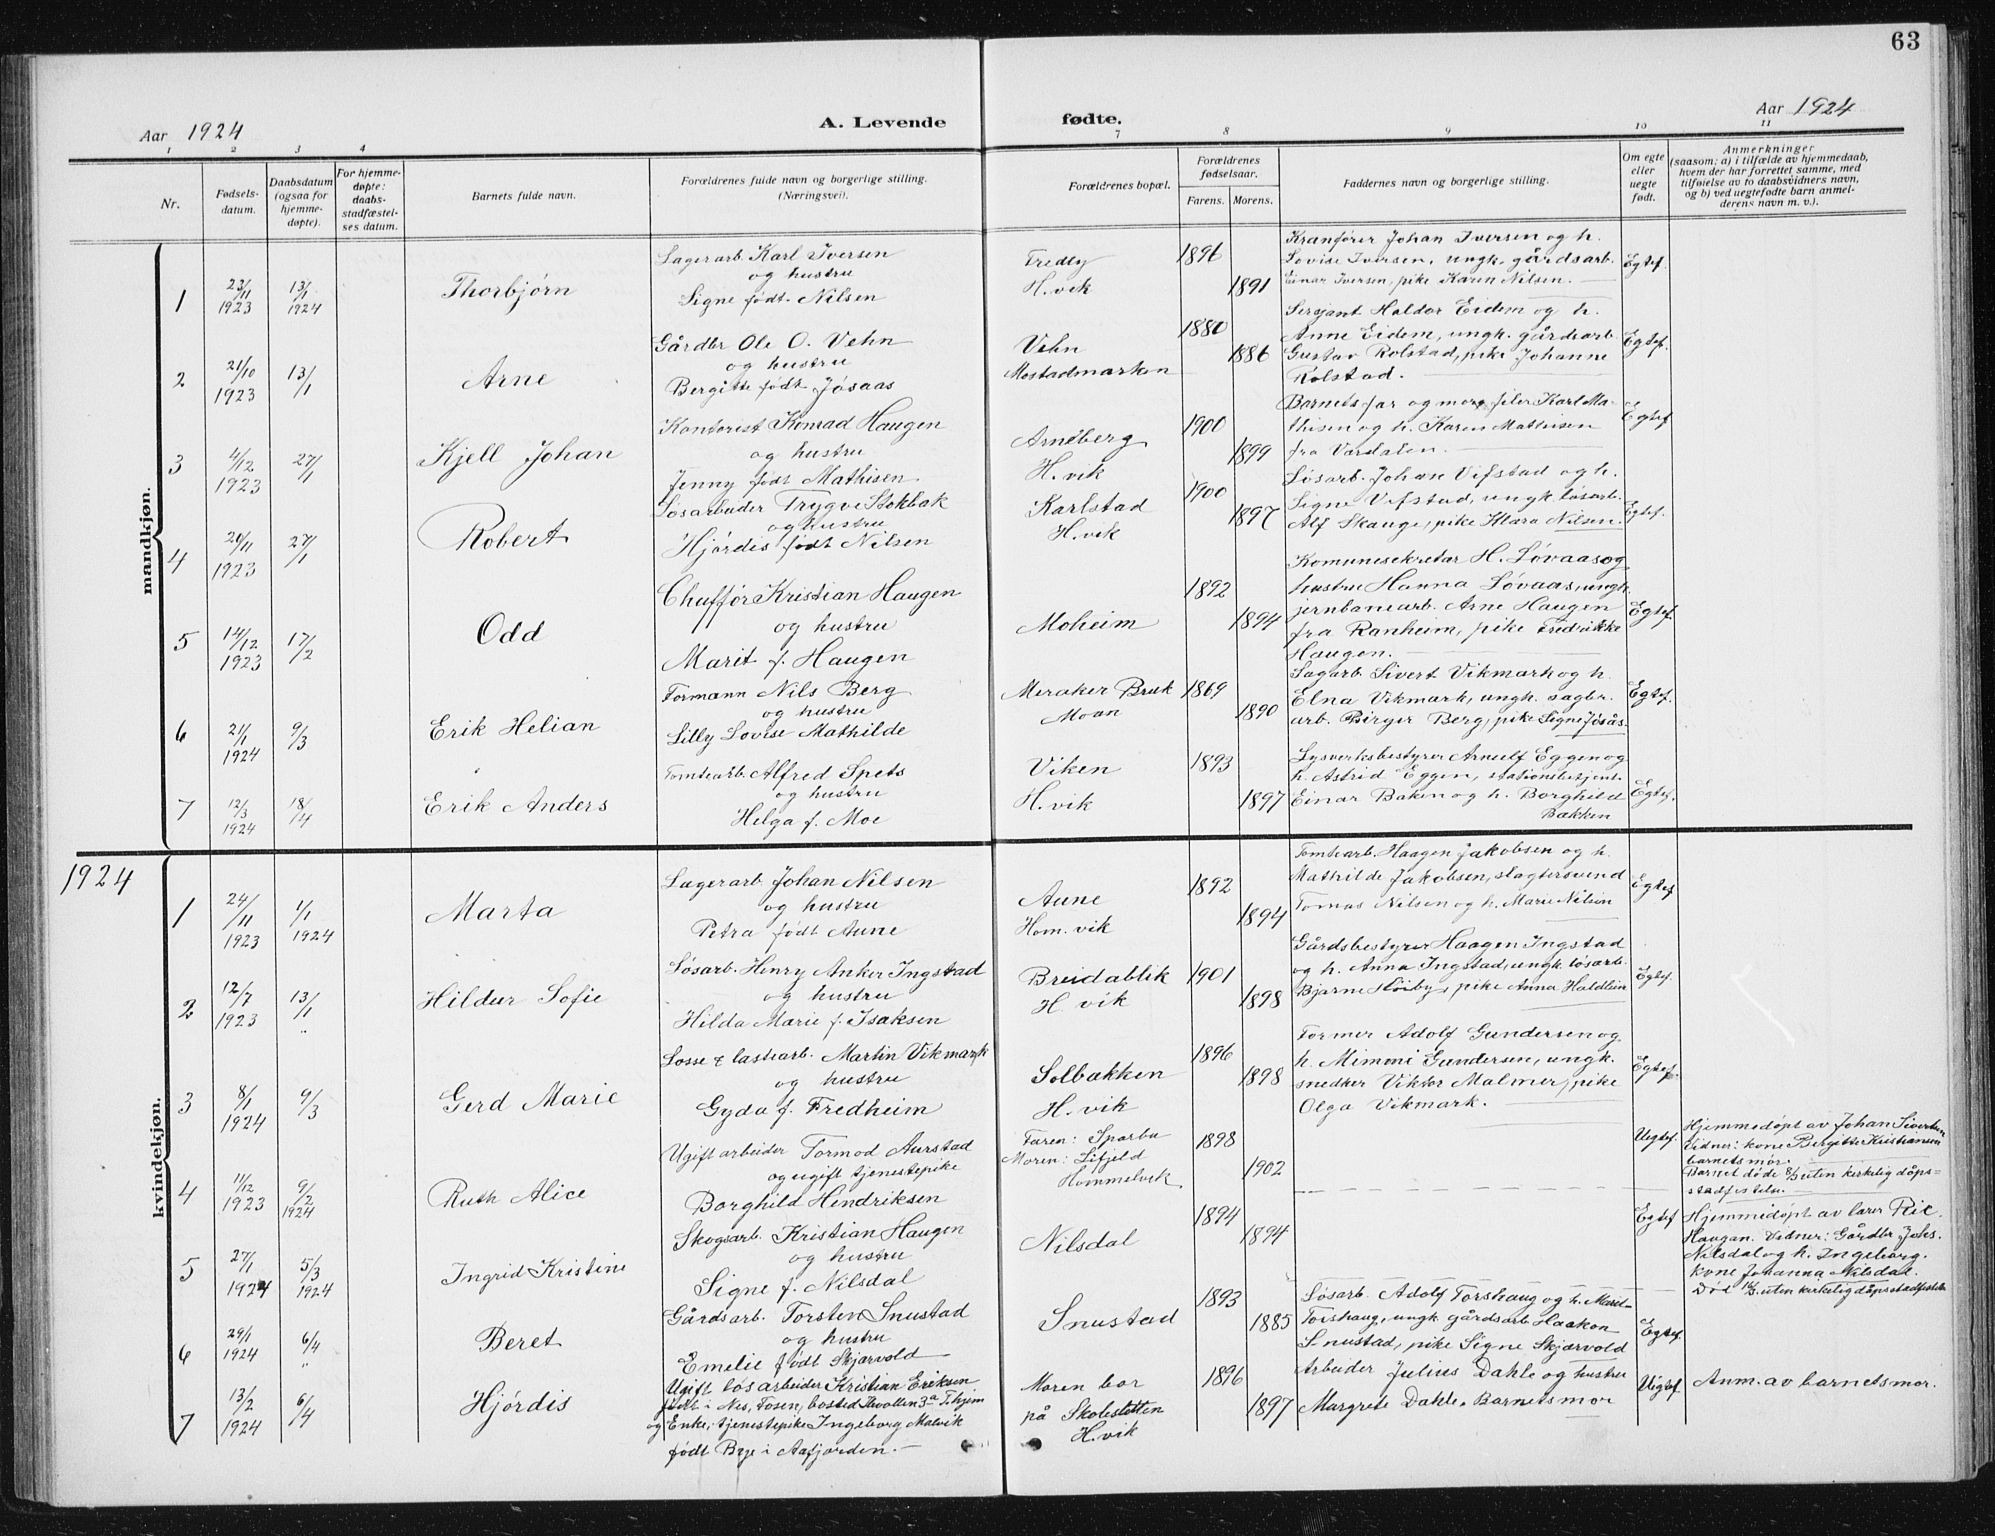 63
Aar 1924
A. Levende fødte.
Aar 1924
1 2 3 4 7 8 9 10 11
Nr.
Fødsels-
datum.
Daabsdatum
(ogsaa for
hjemme-
døpte).
For hjemme-
døpte:
daabs-
stadfæstel-
ses datum.
Barnets fulde navn.
Forældrenes fulde navn og borgerlige stilling.
(Næringsvei).
Forældrenes bopæl.
Forældrenes
fødselsaar.
Farens. Morens.
Faddernes navn og borgerlige stilling.
Om egte
eller
uegte
født.
Anmerkninger
(saasom: a) i tilfælde av hjemmedaab,
hvem der har forrettet samme, med
tilføielse av to daabsvidners navn,
og b) ved uegtefødte barn anmel-
derens navn m. v.).
mandkjøn.
1
23/11
1923
13/1
1924
Thorbjørn
Lagerarb. Karl Iversen
og hustru
Signe født Nilsen
Fredly
H.vik
1896
1891
Kranfører Johan Iversen og h.
Lovise Iversen, ungk. gårdsarb.
Einar Iversen, pike Karen Nilsen.
Egtef.
2
21/10
1923
13/1
Arne
Gårdbr Ole O. Vehn
og hustru
Bergitte født Jøsaas
Vehn
Mostadmarken
1880
1886
Sersjant Haldor Eidem og h.
Anne Eidem, ungk. gårdsarb
Gustav Rolstad, pike Johanne
Rolstad.
Egtef.
3
4/12
1923
27/1
Kjell Johan
Kontorist Konrad Haugen
og hustru
Jenny født Mathisen
Arneberg
H.vik
1900
1899
Barnets far og mor, filer Karl Ma-
thisen og h. Karen Mathisen
fra Værdalen.
Egtef
4
20/11
1923
27/1
Robert
Løsarbeider Trygve Stokbak
og hustru
Hjørdis født Nilsen
Karlstad
H.vik
1900
1897
Løsarb. Johan Vifstad og h.
Signe Vifstad, ungk. løsarb.
Alf Skauge, pike Klara Nilsen.
Egtef.
5
14/12
1923
17/2
Odd
Chufför Kristian Haugen
og hustru
Marit f. Haugen
Moheim
1892
1894
Komunesekretær H. Løvaas og
hustru Hanna Løvaas, ungk
jernbanearb. Arne Haugen
fra Ranheim, pike Fredrikke
Haugen.
Egtef.
6
21/1
1924
9/3
Erik Helian
Formann Nils Berg
og hustru
Lilly Lovise Mathilde
Meraker Bruk
Moan
1869
1890
Sagarb. Sivert Vikmark og h.
Elna Vikmark, ungk. sagbr.
arb. Birger Berg, pike Signe Jøsås.
Egtef.
7
12/3
1924
18/4
Erik Anders
Tomtearb. Alfred Spets
og hustru
Helga f. Moe
Viken
H.vik
1893
1897
Lysverksbestyrer Arnulf Eggen og
h. Astrid Eggen, stationsbetjent
Einar Bakken og h. Borghild
Bakken
Egtef.
1924
kvindekjøn.
1
24/11
1923
1/1
1924
Marta
Lagerarb. Johan Nilsen
og hustru
Petra født Aune
Aune
Hom.vik
1892
1894
Tomtearb. Haagen Jakobsen og h.
Mathilde Jakobsen, slagtersvend
Tomas Nilsen og h. Marie Nilsen
Egtef.
2
12/7
1923
13/1
"
Hildur Sofie
Løsarb. Henry Anker Ingstad
og hustru
Hilda Marie f. Isaksen
Breidablik
H.vik
1901
1898
Gårdsbestyrer Haagen Ingstad
og h. Anna Ingstad, ungk. løsarb.
Bjarne Høiby, pike Anna Haldlein
Egtef.
3
8/1
1924
9/3
Gerd Marie
Losse & lastearb. Martin Vikmark
og hustru
Gyda f. Fredheim
Solbakken
H.vik
1896
1898
Former Adolf Gundersen og
h. Mimmi Gundersen, ungk.
snedker Viktor Malmer, pike
Olga Vikmark.
Egtef.
4
11/12
1923
9/2
1924
Ruth Alice
Ugift arbeider Tormod Aurstad
og ugift tjenestepike
Borghild Hendriksen
Faren: Sparbu
Moren: Lifjeld
Hommelvik
1898
1902
Uegtef.
Hjemmedøpt av Johan Sivertsen
Vidner: kone Bergitte Kristiansen
barnets mor.
Barnet døde uten kirkelig dåps-
stadfestelse.
5
27/1
1924
5/3
1924
Ingrid Kristine
Skogsarb. Kristian Haugen
og hustru
Signe f. Nilsdal
Nilsdal
1894
1894
Egtef
Hjemmedøpt av lærer
Haugan. Vidner: Gårdbr Johs.
Nilsdal og h. Ingeborg.
kone Johanna Nilsdal.
Død uten kirkelig dåpsstadfestelse
6
29/1
1924
6/4
"
Beret
Gårdsarb. Torsten Snustad
og hustru
Emelie født Skjærvold
Snustad
1893
1885
Løsarb. Adolf Torshaug og h. Marit
Torshaug, ungk. gårdsarb. Haakon
Snustad, pike Signe Skjærvold
Egtef.
7
13/2
1924
6/4
Hjørdis
Ugift løsarbeider Kristian Eriksen
født i Nes, Fosen, bosted Ihvollen 3ª T.hjem
og Enke, tjenestepike Ingeborg Malvik
født Bye i Aafjorden.
Moren bor
på Skolesletten
H.vik
1896
1897
Arbeider Julius Dahle og hustru
Margrete Dahle. Barnets mor
Uegtef.
Anm. av barnets mor.